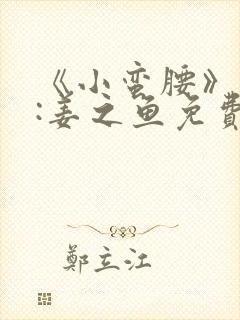 《小蛮腰》
:姜之鱼免費
鄭立江